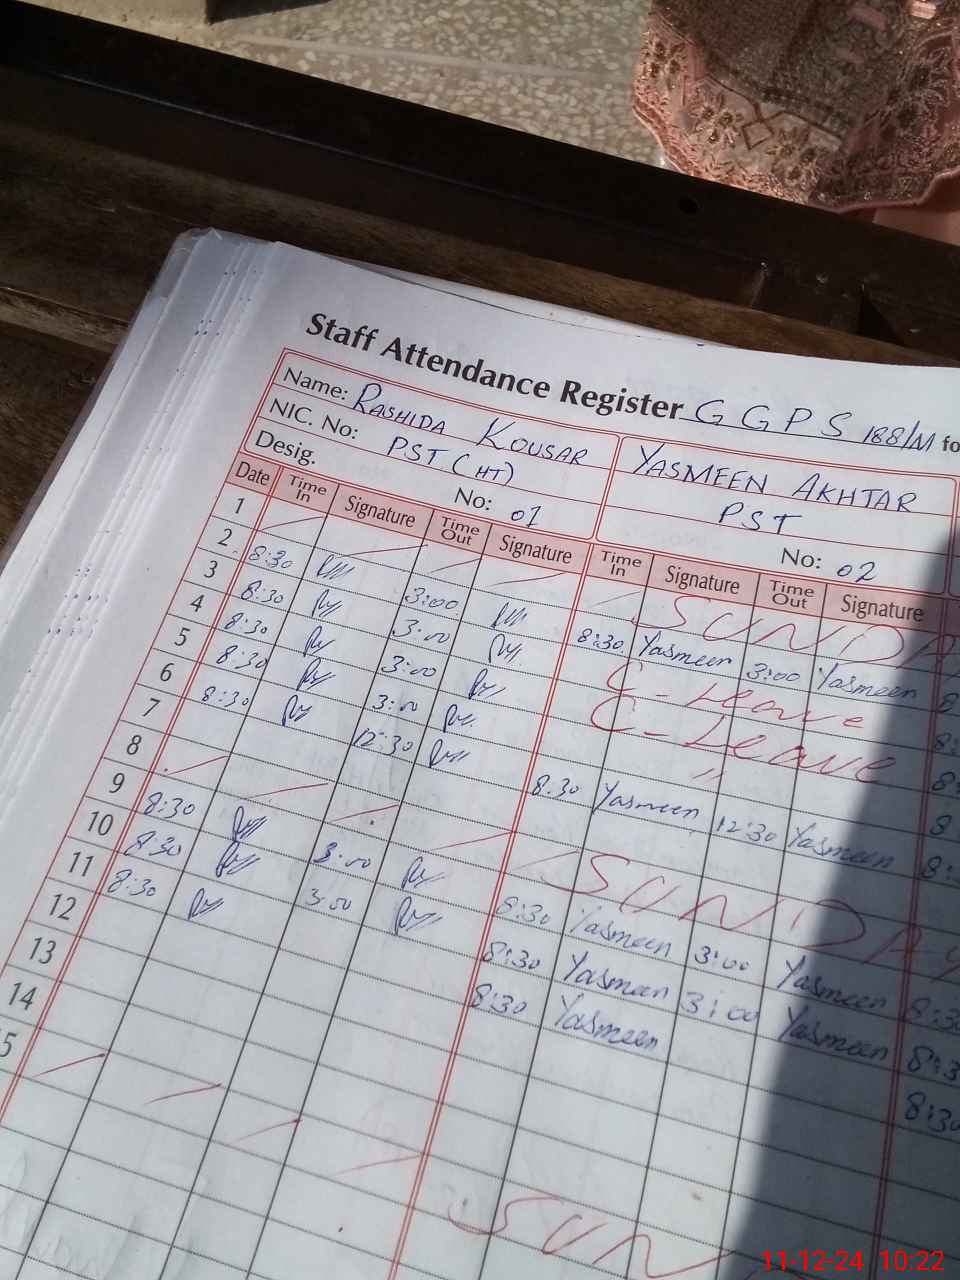 Staff Attendance Register G G P S 188/M fo
Name: RASHIDA KOUSAR YASMEEN AKHTAR
NIC. No: PST (HT) PST
Desig. No: 01 No: 02
Date Time In Signature Time Out Signature Time In Signature Time Out Signature
1 SUNDA
2 8:30 3:00 8:30 Yasmeen 3:00 Yasmeen
3 8:30 3:00 C-Leave
4 8:30 3:00 C-Leave
5 8:30 3:00 "
6 8:30 12:30 8:30 Yasmeen 12:30 Yasmeen
7
8 SUNDAY
9 8:30 3:00 8:30 Yasmeen 3:00 Yasmeen 8:30
10 8:30 3:00 8:30 Yasmeen 3:00 Yasmeen 8:3
11 8:30 8:30 Yasmeen 8:30
12
13
14
5 SUN
11-12-24 10:22